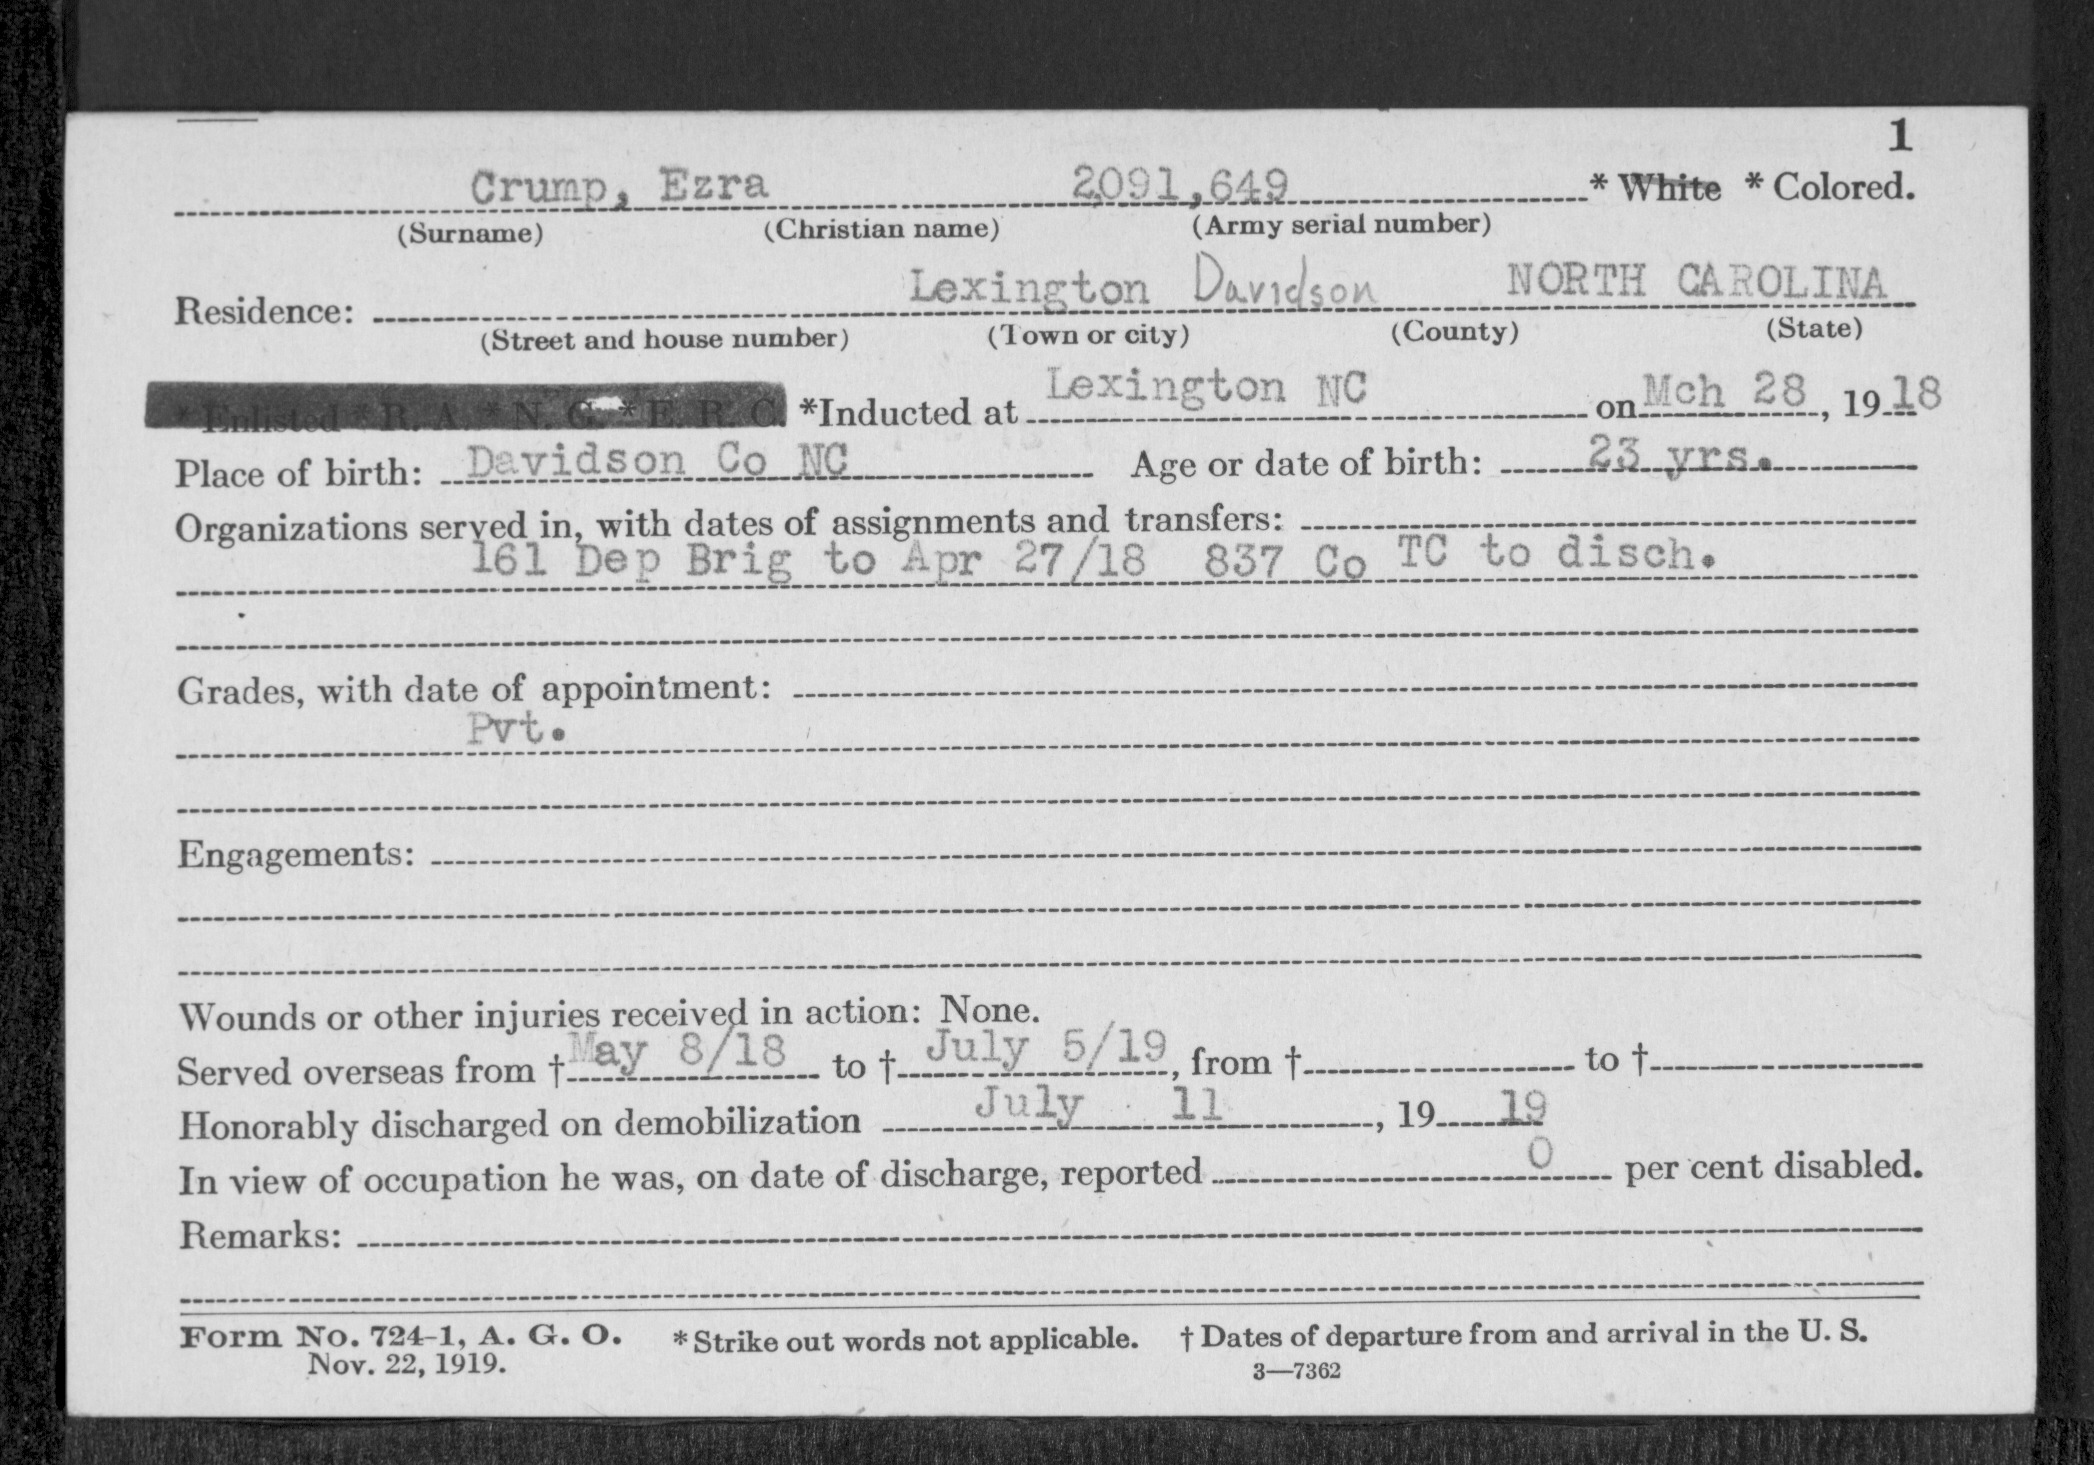 1
Crump, Ezra 2091,649 * White * Colored.
(Surname) (Christian name) (Army serial number)
Residence: Lexington Davidson NORTH CAROLINA
(Street and house number) (Town or city) (County) (State)
* Enlisted * R. A. * N. G. * E. R. C. *Inducted at Lexington NC on Mch 28, 1918
Place of birth: Davidson Co NC Age or date of birth: 23 yrs.
Organizations served in, with dates of assignments and transfers:
161 Dep Brig to Apr 27/18 837 Co TC to disch.
Grades, with date of appointment:
Pvt.
Engagements:
Wounds or other injuries received in action: None.
Served overseas from † May 8/18 to † July 5/19, from † to †
Honorably discharged on demobilization July 11, 19 19
In view of occupation he was, on date of discharge, reported 0 per cent disabled.
Remarks:
Form No. 724-1, A. G. O. * Strike out words not applicable. † Dates of departure from and arrival in the U. S.
Nov. 22, 1919. 3—7362